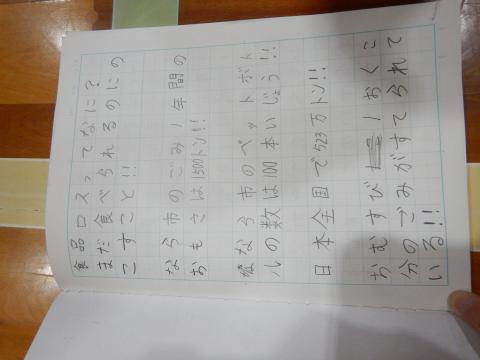 食品ロスってなに?
まだ食べられるのにの
こすこと!!
なら市のごみ1年間の
おもさは1500トン!!
なら市のペットボト
ルの数は100本いじょう!!
日本全国で523万トン!!
おむすび1おくこ
分のごみがすてられて
いる!!